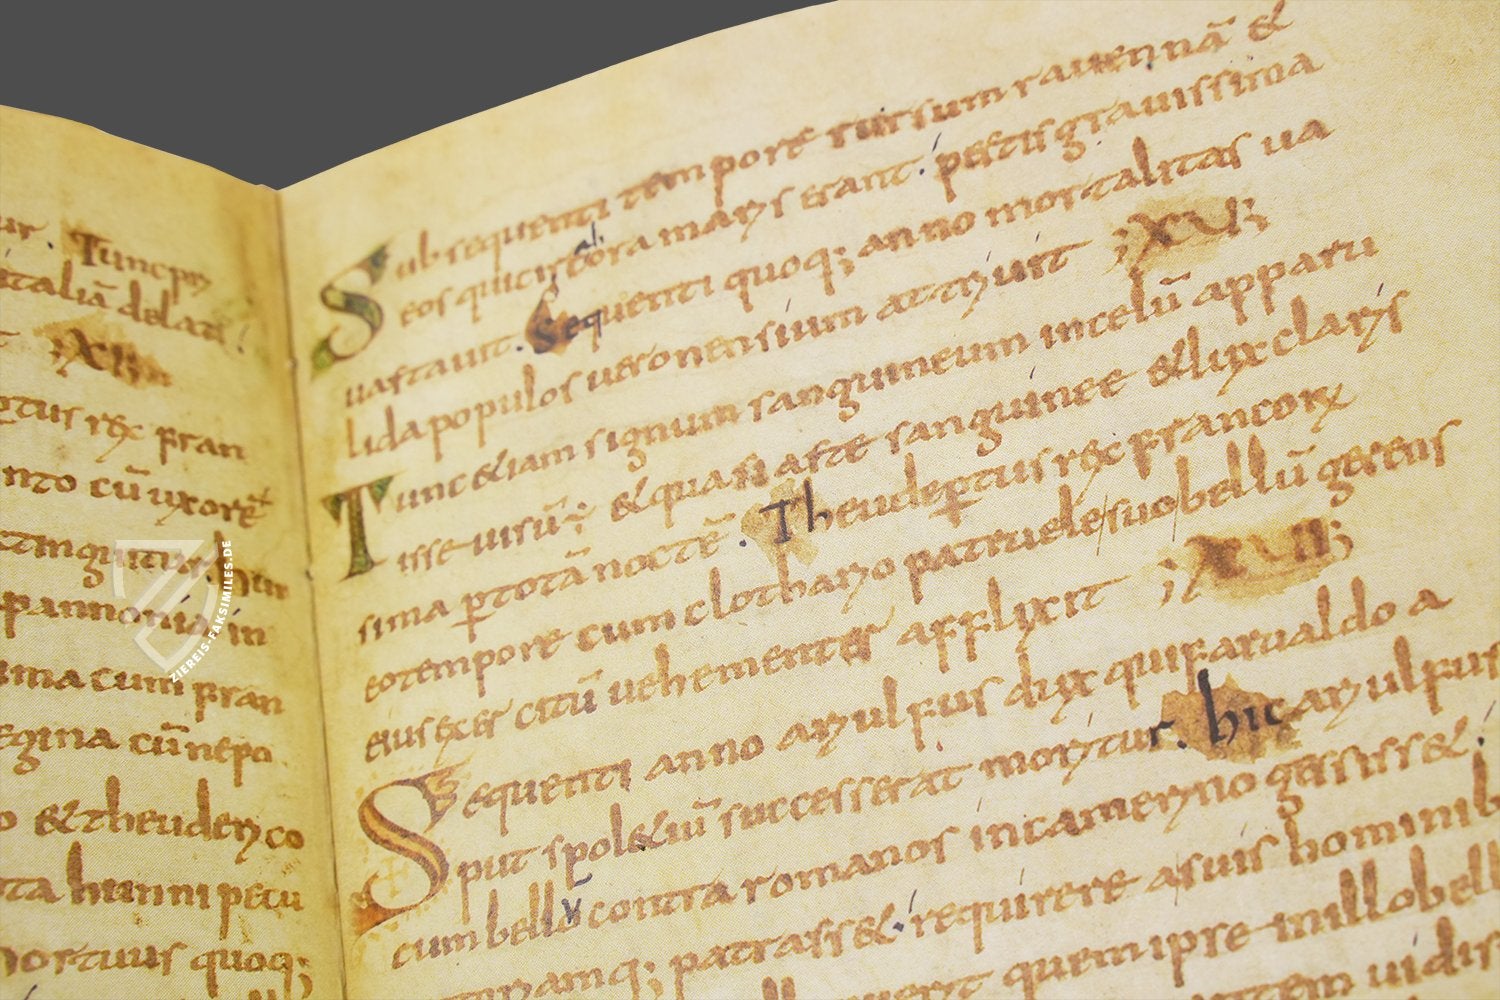 ur. Tuncpri
italiā delati;
;XII;
ptus rex fran
nto cū uxorē
ctinguitur; hun
pannonia in
ima cum fran
egina cū nepo
o & theuderico
ta hunni petu
ortuus quoq;
Subsequenti tempore rursum rauennā &
eos qui circa ora maris erant. pestis grauissima
uastauit. Sequenti quoq; anno mortalitas ua
lida populos ueronensium attriuit ;XVI;
Tunc &iam signum sanguineum in celū apparu
isse uisū; & quasi astę sanguineę & lux claris
sima p totā noctē. Theudepertus rex francorum
eo tempore cum clothario patruele suo bellū gerens
eius exercitū uehementer afflixit ;XVII;
Sequenti anno ariulfus dux qui faroaldo a
put spol&iū successerat moritur. hic ariulfus
cum bellū contra romanos in camerino gessiss&;
uictoriamq; patrass&; requirere a suis hominib
quem ipse in illo bell
uidis
ZIEREIS-FAKSIMILES.DE